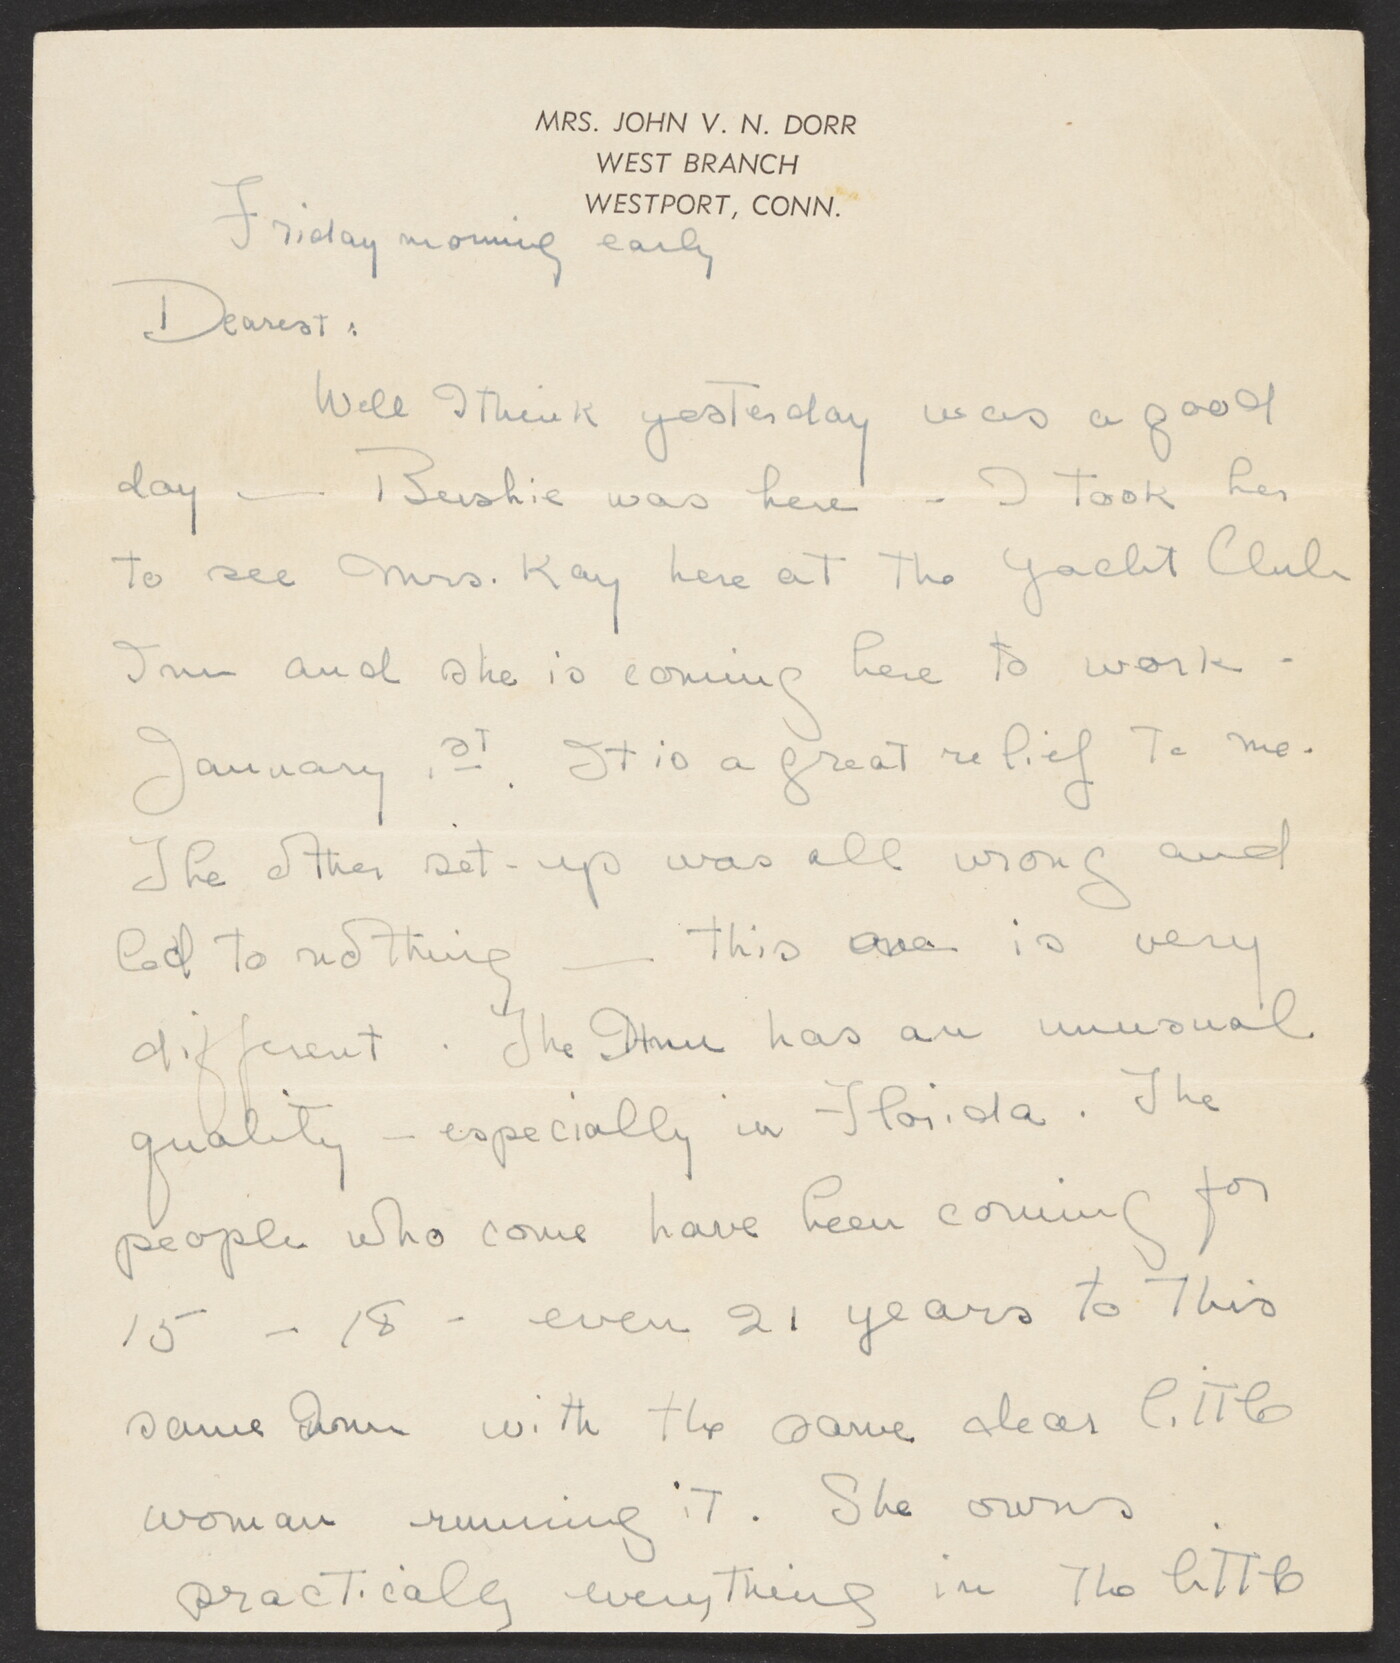 MRS. JOHN V. N. DORR
WEST BRANCH
WESTPORT, CONN.
Friday morning early
Dearest:
Well I think yesterday was a good
day — Bushie was here - I took her
to see Mrs. Kay here at the Yacht Club
Inn and she is coming here to work -
January 1st. It is a great relief to me.
The other set-up was all wrong and
led to nothing — this one is very
different. The Inn has an unusual
quality - especially in Florida. The
people who come have been coming for
15 - 18 - even 21 years to this
same Inn with the same dear little
woman running it. She owns
practically everything in the little